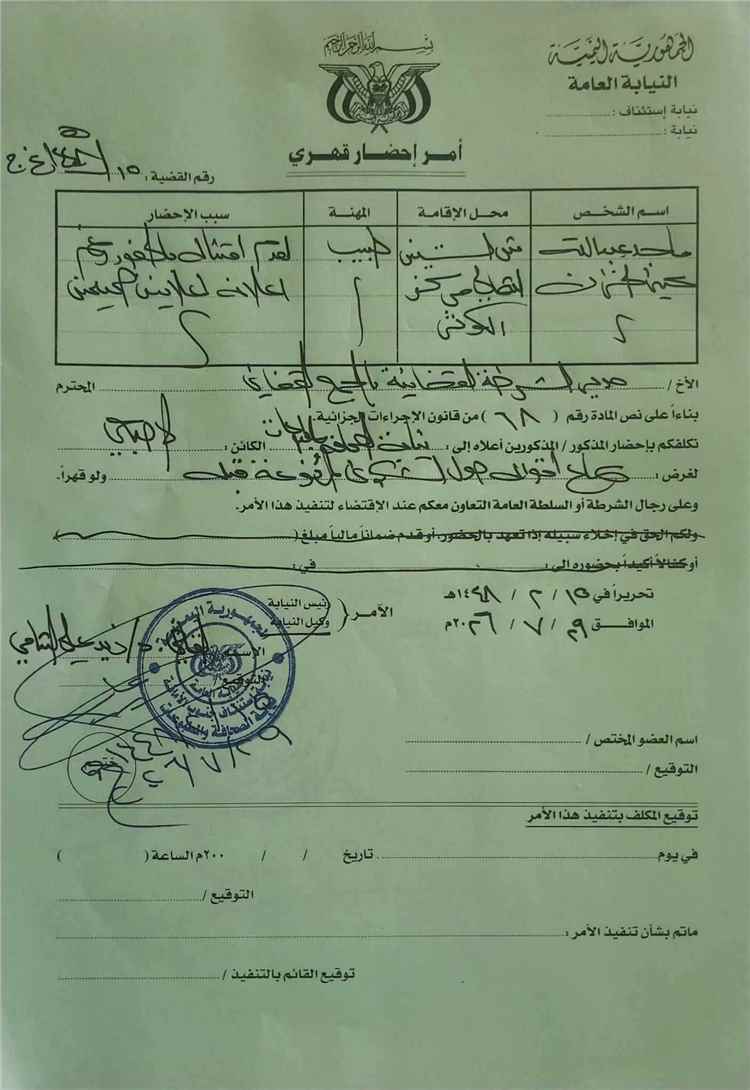 بسم الله الرحمن الرحيم
الجمهورية اليمنية
النيابة العامة
نيابة إستئناف :
نيابة :
أمر إحضار قهري
رقم القضية : ١٥
اسم الشخص محل الإقامة المهنة سبب الإحضار
ماجد طبيب لعدم امتثاله بالحضور رغم
اعلانه
الأخ / مدير الشرطة القضائية بالمجمع القضائي المحترم
بناءاً على نص المادة رقم ( ٦٨ ) من قانون الإجراءات الجزائية.
نكلفكم بإحضار المذكور / المذكورين أعلاه إلى : نيابة الصحافة والمطبوعات الكائن :
لغرض : سماع أقواله حول الشكوى المرفوعة قبله ولو قهراً.
وعلى رجال الشرطة أو السلطة العامة التعاون معكم عند الإقتضاء لتنفيذ هذا الأمر.
ولكم الحق في إخلاء سبيله إذا تعهد بالحضور، أو قدم ضماناً مالياً مبلغ (
أو كفالاً أكيداً بحضوره إلى : في :
تحريراً في ١٥ / ٢ / ١٤٤٨هـ
الموافق ٢٩ / ٧ / ٢٠٢٦م
الأمر { رئيس النيابة
وكيل النيابة
الاسم
التوقيع /
الجمهورية اليمنية
النيابة العامة
نيابة الصحافة والمطبوعات
اسم العضو المختص /
التوقيع /
توقيع المكلف بتنفيذ هذا الأمر
في يوم تاريخ / / ٢٠٠م الساعة ( )
التوقيع /
ماتم بشأن تنفيذ الأمر :
توقيع القائم بالتنفيذ /